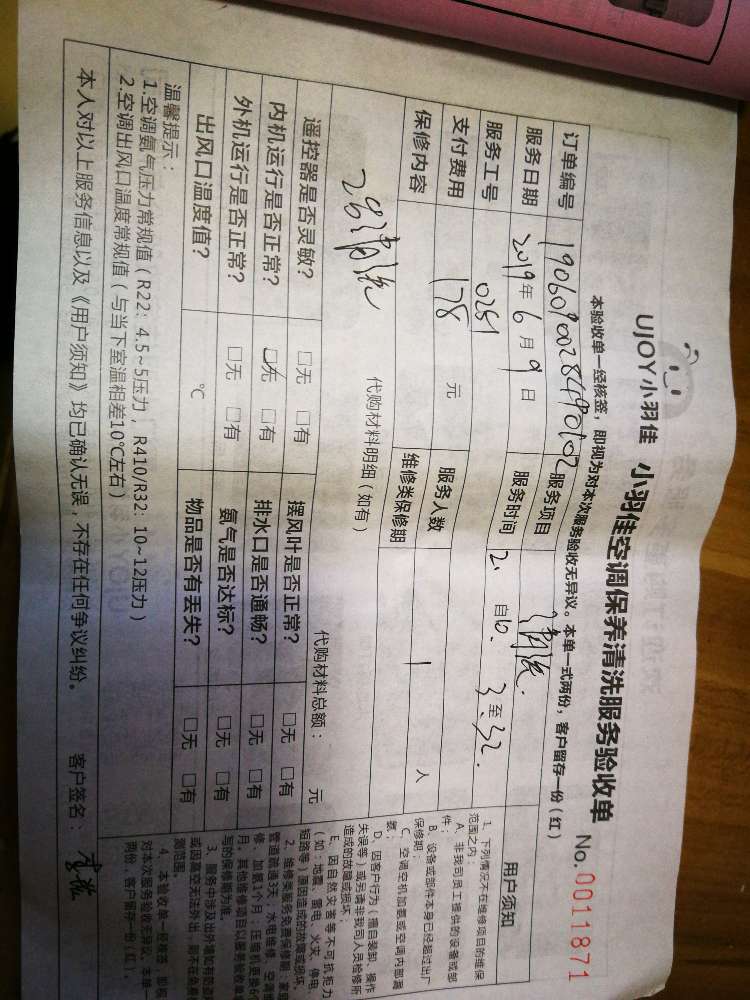 UJOY小羽佳 小羽佳空调保养清洗服务验收单 No.0011871
本验收单一经核签，即视为对本次服务验收无异议。本单一式两份，客户留存一份（红）
订单编号 服务项目 清洗
服务日期 2019年6月9日 服务时间 自 至
服务工号 0251 服务人数 1 人
支付费用 178 元 维修类保修期
保修内容
代购材料明细（如有） 代购材料总额： 元
清洗
遥控器是否灵敏？ □无 □有 摆风叶是否正常？ □无 □有
内机运行是否正常？ □无 □有 排水口是否通畅？ □无 □有
外机运行是否正常？ □无 □有 氨气是否达标？ □无 □有
出风口温度值？ ℃ 物品是否有丢失？ □无 □有
温馨提示：
1.空调氨气压力常规值（R22：4.5~5压力，R410/R32：10~12压力）
2.空调出风口温度常规值（与当下室温相差10℃左右）
本人对以上服务信息以及《用户须知》均已确认无误，不存在任何争议纠纷。 客户签名：
用户须知
1、下列情况不在维修项目的维保
范围之内：
A、非我司员工提供的设备或部
件；
B、设备或部件本身已经超过出厂
保修期；
C、空调空机加氨或空调内部漏
氨；
D、因客户行为（擅自装卸、操作
失误等）或另请非我司人员检修所
造成的故障或损坏；
E、因自然灾害等不可抗拒力
（如：地震、雷电、火灾、停电、
短路等）原因造成的故障或损坏。
2、维修类服务免费保修期：家庭
管道疏通3天，水电维修、空调维
修、加氨1个月；压缩机更换6
月；其他维修项目以服务验收单
写的保修期为准。
3、服务中涉及出外墙如有防盗
或因高空无法外出，则不在免费
测范围。
4、本验收单一经核签，即视
对本次服务验收无异议，本单一
两份，客户留存一份（红）。